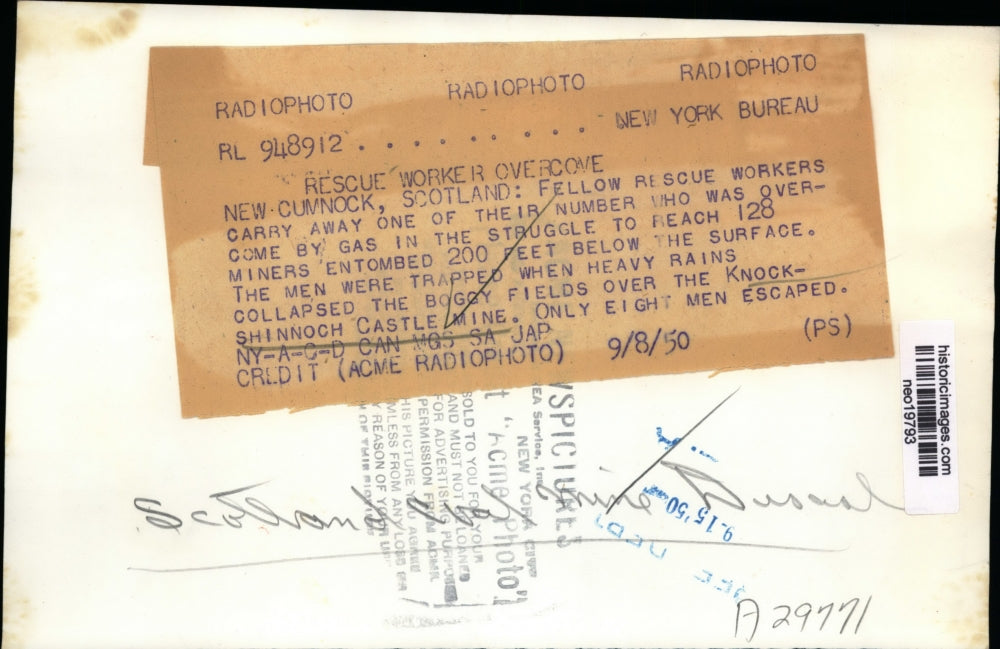 RADIOPHOTO RADIOPHOTO RADIOPHOTO
RL 948912 . . . . . . . . . . NEW YORK BUREAU
RESCUE WORKER OVERCOVE
NEW CUMNOCK, SCOTLAND: FELLOW RESCUE WORKERS
CARRY AWAY ONE OF THEIR NUMBER WHO WAS OVER-
COME BY GAS IN THE STRUGGLE TO REACH 128
MINERS ENTOMBED 200 FEET BELOW THE SURFACE.
THE MEN WERE TRAPPED WHEN HEAVY RAINS
COLLAPSED THE BOGGY FIELDS OVER THE KNOCK-
SHINNOCH CASTLE MINE. ONLY EIGHT MEN ESCAPED.
NY-A-C-D CAN MGS SA JAP (PS)
CREDIT (ACME RADIOPHOTO) 9/8/50
historicimages.com
neo19793
EA Service, Inc.
NEW YORK
"Acme Photo"
SOLD TO YOU FOR YOUR
AND MUST NOT LOANED
FOR ADVERTISING PURPOSES
PERMISSION FROM ACME
THIS PICTURE YOU AGREE
FROM ANY LOSS
REASON OF YOUR
OF THIS PICTURE
Scotland
9.15'50
A29771